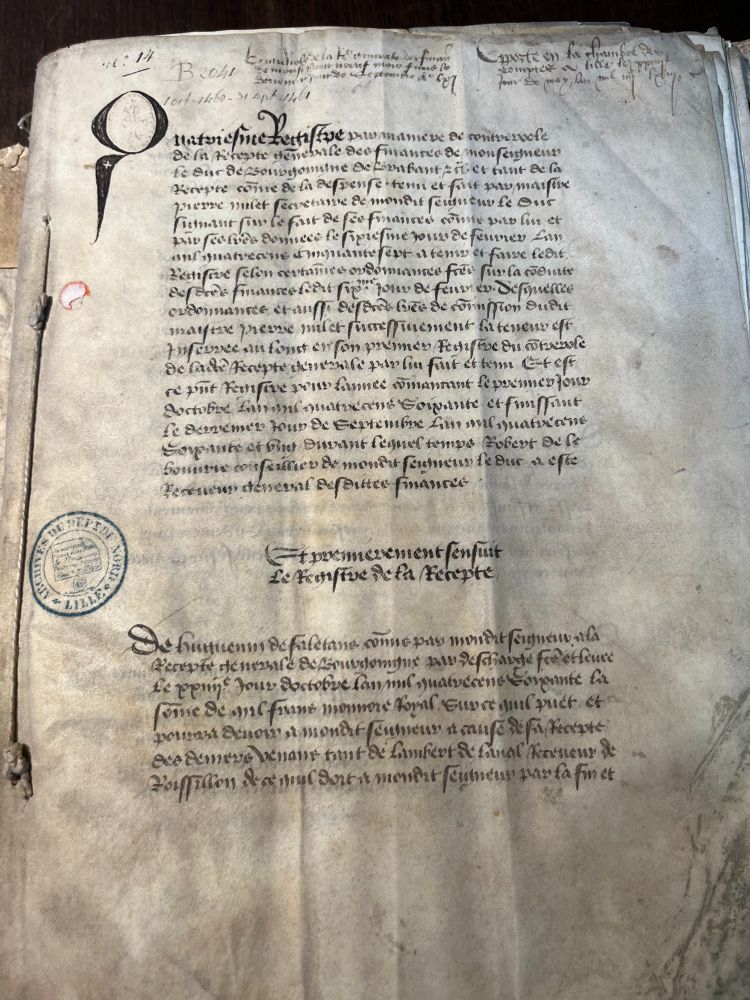 n° 14
B 2041
1 oct. 1460 - 30 sept. 1461
Contrerole de la Rte generale des finances
Apporte en la chambre des
comptes a lille le xxviie
jour de may lan mil iiiic lxii
Quatriesme Registre par maniere de contrerole
de la Recepte generale des finances de monseigneur
le duc de Bourgoingne de Brabant &c et tant de la
Recepte cõme de la despense tenu et fait par maistre
pierre milet secretaire de mondit seigneur le Duc
suivant sur le fait de ses finances cõme par lui et
par ses lrẽs donnees le sixiesme Jour de fevrier Lan
mil quatrecens cinquante sept a tenir et faire ledit
Registre selon certaines ordonnances fctẽs sur la cõduite
desdctẽs finances ledit sixme Jour de fevrier. Desquelles
ordonnances et aussi desdctẽs lrẽs de cõmission dudit
maistre pierre milet successivement la teneur est
Inserree au long en son premier Registre du cõtrerole
de ladctẽ Recepte generale par lui fait et tenu Et est
ce pñt Registre pour lannee cõmancant le premier Jour
doctobre Lan mil quatrecens Soixante et finissant
le derrenier Jour de Septembre Lan mil quatrecens
Soixante et ung durant lequel temps Robert de le
bouvrie conseillier de mondit seigneur le duc a este
Receveur general desdittes finances
Et premierement sensuit
Le Registre de la Recepte
De huguenin de faletans cõmis par mondit seigneur a la
Recepte generale de Bourgoingne par descharge fctẽ et levee
Le xxiiiie Jour doctobre lan mil quatrecens Soixante la
sõme de mil frans monnoie Royal Sur ce quil puet et
pourra devoir a mondit seigneur a cause de sa Recepte
des deniers venans tant de Lambert de laval Receveur de
Roissillon de ce quil doit a mondit seigneur par la fin et
ARCHIVES DU DEPT DU NORD
LILLE